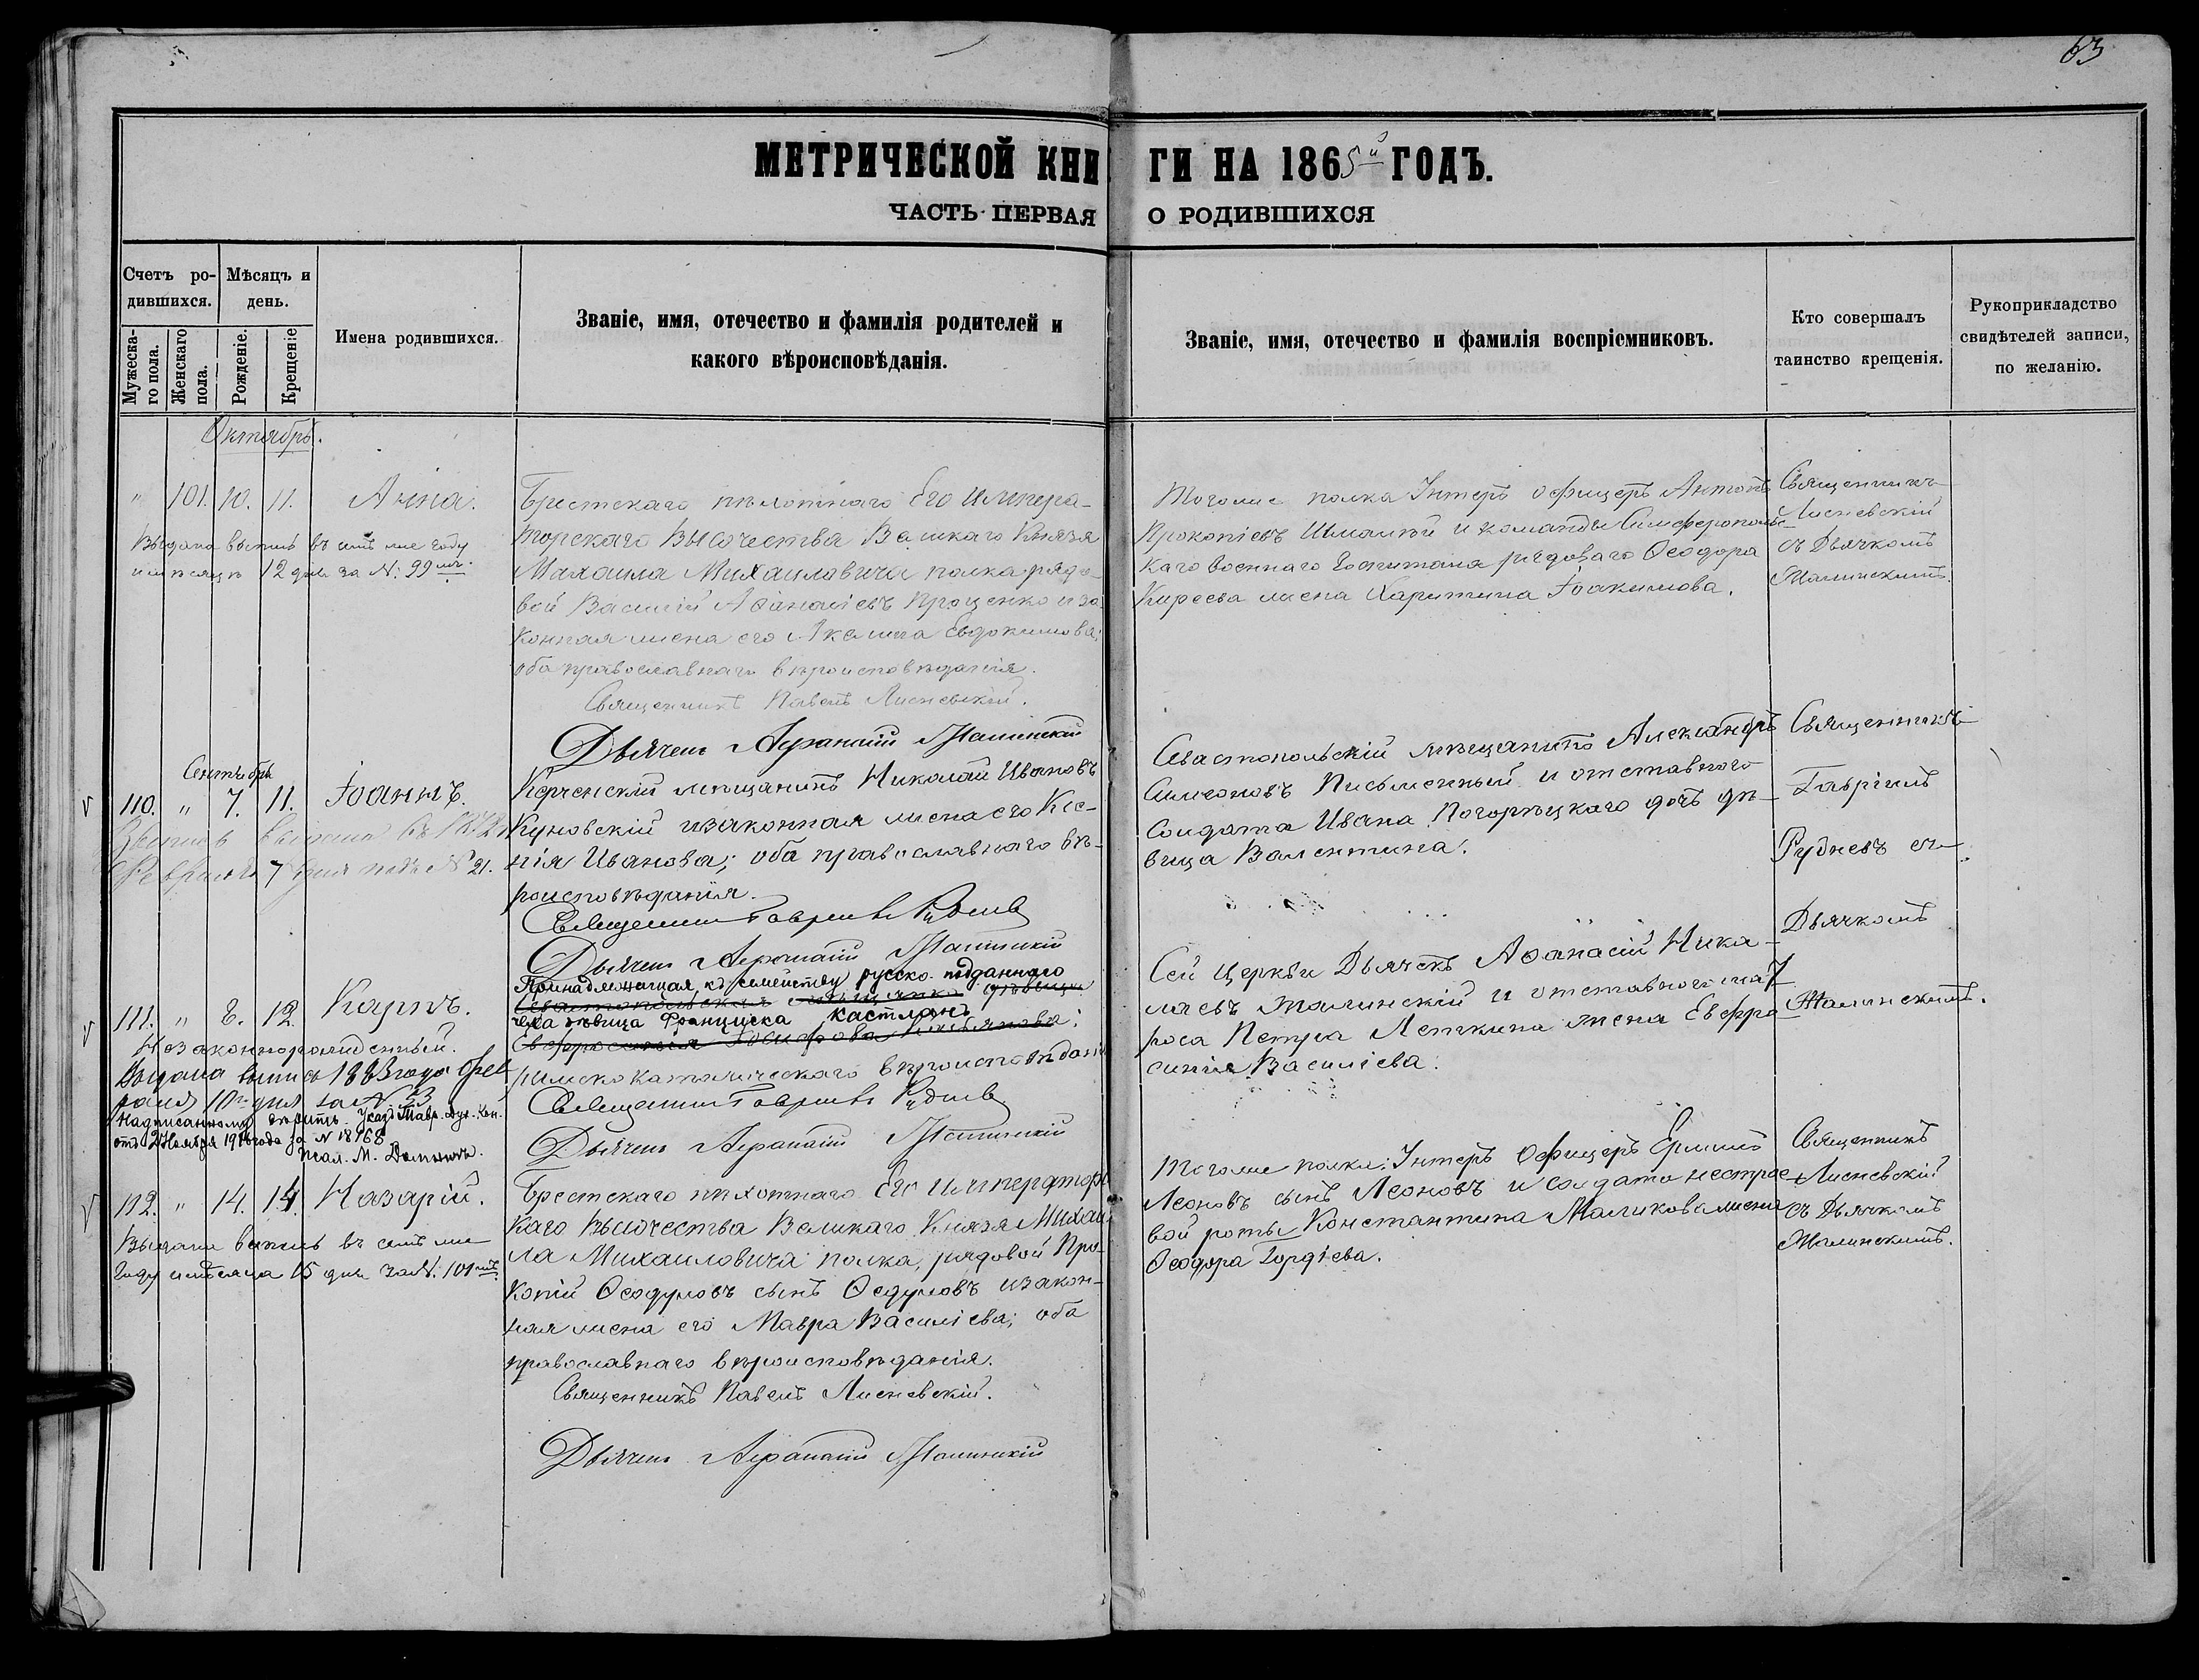 63
МЕТРИЧЕСКОЙ КНИГИ НА 1865й ГОДЪ.
ЧАСТЬ ПЕРВАЯ О РОДИВШИХСЯ
Счетъ ро-
дившихся.
Мѣсяцъ и
день.
Мужеска-
го пола.
Женскаго
пола.
Рожденіе.
Крещеніе
Имена родившихся.
Званіе, имя, отечество и фамилія родителей и
какого вѣроисповѣданія.
Званіе, имя, отечество и фамилія воспріемниковъ.
Кто совершалъ
таинство крещенія.
Рукоприкладство
свидѣтелей записи,
по желанію.
Октябрь.
" 101. 10. 11. Анна.
Выдана выпись въ семъ же году
и мѣсяцѣ 12 дня за №. 99мъ.
Брестскаго пѣхотнаго Его Импера-
торскаго Высочества Великаго Князя
Михаила Михаиловича полка рядо-
вой Василій Аѳанасіевъ Проценко и за-
конная жена его Акелина Евдокимова;
оба православнаго вѣроисповѣданія.
Священникъ Павелъ Лисневскій.
Дьячекъ Аѳанасій Малинскій
Тогоже полка Унтеръ офицеръ Антонъ
Прокопіевъ Шмалій и команды Симферопольс-
каго военнаго Госпиталя рядоваго Ѳеодора
Киреева жена Харитина Іоакимова.
Священникъ
Лисневскій
съ Дьячкомъ
Малинскимъ.
Сентябрь
110. " 7. 11. Іоаннъ.
Февраля 7 дня подъ № 21.
Керченскій мѣщанинъ Николай Ивановъ
Куновскій и законная жена его Ксе-
нія Иванова; оба православнаго вѣ-
роисповѣданія.
Священникъ Гавріилъ Рудневъ
Дьячекъ Аѳанасій Малинскій
Севастопольскій мѣщанинъ Александръ
Симеоновъ Письменный и отставного
солдата Ивана Погорѣцкаго дочь дѣ-
вица Валентина.
Священникъ
Гавріилъ
Рудневъ съ
Дьячкомъ
Малинскимъ.
111. " 8. 12. Карпъ.
Незаконнорожденный.
Выдана выпись 1883 года Фев-
раля 10го дня за № 23
Надписанному вѣрить. Указъ Тавр. Дух. Кон.
отъ 2 Ноября 1916 года за № 18168
Псал. М.
Принадлежащая къ семейству русско-подданного
Севастопольская мѣщанка дѣвица
чеха дѣвица Франциска Кастлянъ
Евфросинія
римско католическаго вѣроисповѣданія
Священникъ Гавріилъ Рудневъ
Дьячекъ Аѳанасій Малинскій
Сей Церкви Дьячекъ Аѳанасій Нико-
лаевъ Малинскій и отставного мат-
роса Петра Леткина жена Евфро-
синія Василіева.
112. " 14. 14. Назарій.
Выдана выпись въ семъ же
году и мѣсяца 15 дня за №. 101мъ.
Брестскаго пѣхотнаго Его Императорс-
каго Высочества Великаго Князя Михаи-
ла Михаиловича полка, рядовой Про-
копій Ѳеодуловъ сынъ Ѳедуловъ и закон-
ная жена его Мавра Василіева; оба
православнаго вѣроисповѣданія.
Священникъ Павелъ Лисневскій.
Дьячекъ Аѳанасій Малинскій
Тогоже полка: Унтеръ Офицеръ Ермилъ
Леоновъ сынъ Леоновъ и солдата нестрое-
вой роты Константина Маликова жена
Ѳеодора Гордіева.
Священникъ
Лисневскій
съ Дьячкомъ
Малинскимъ.